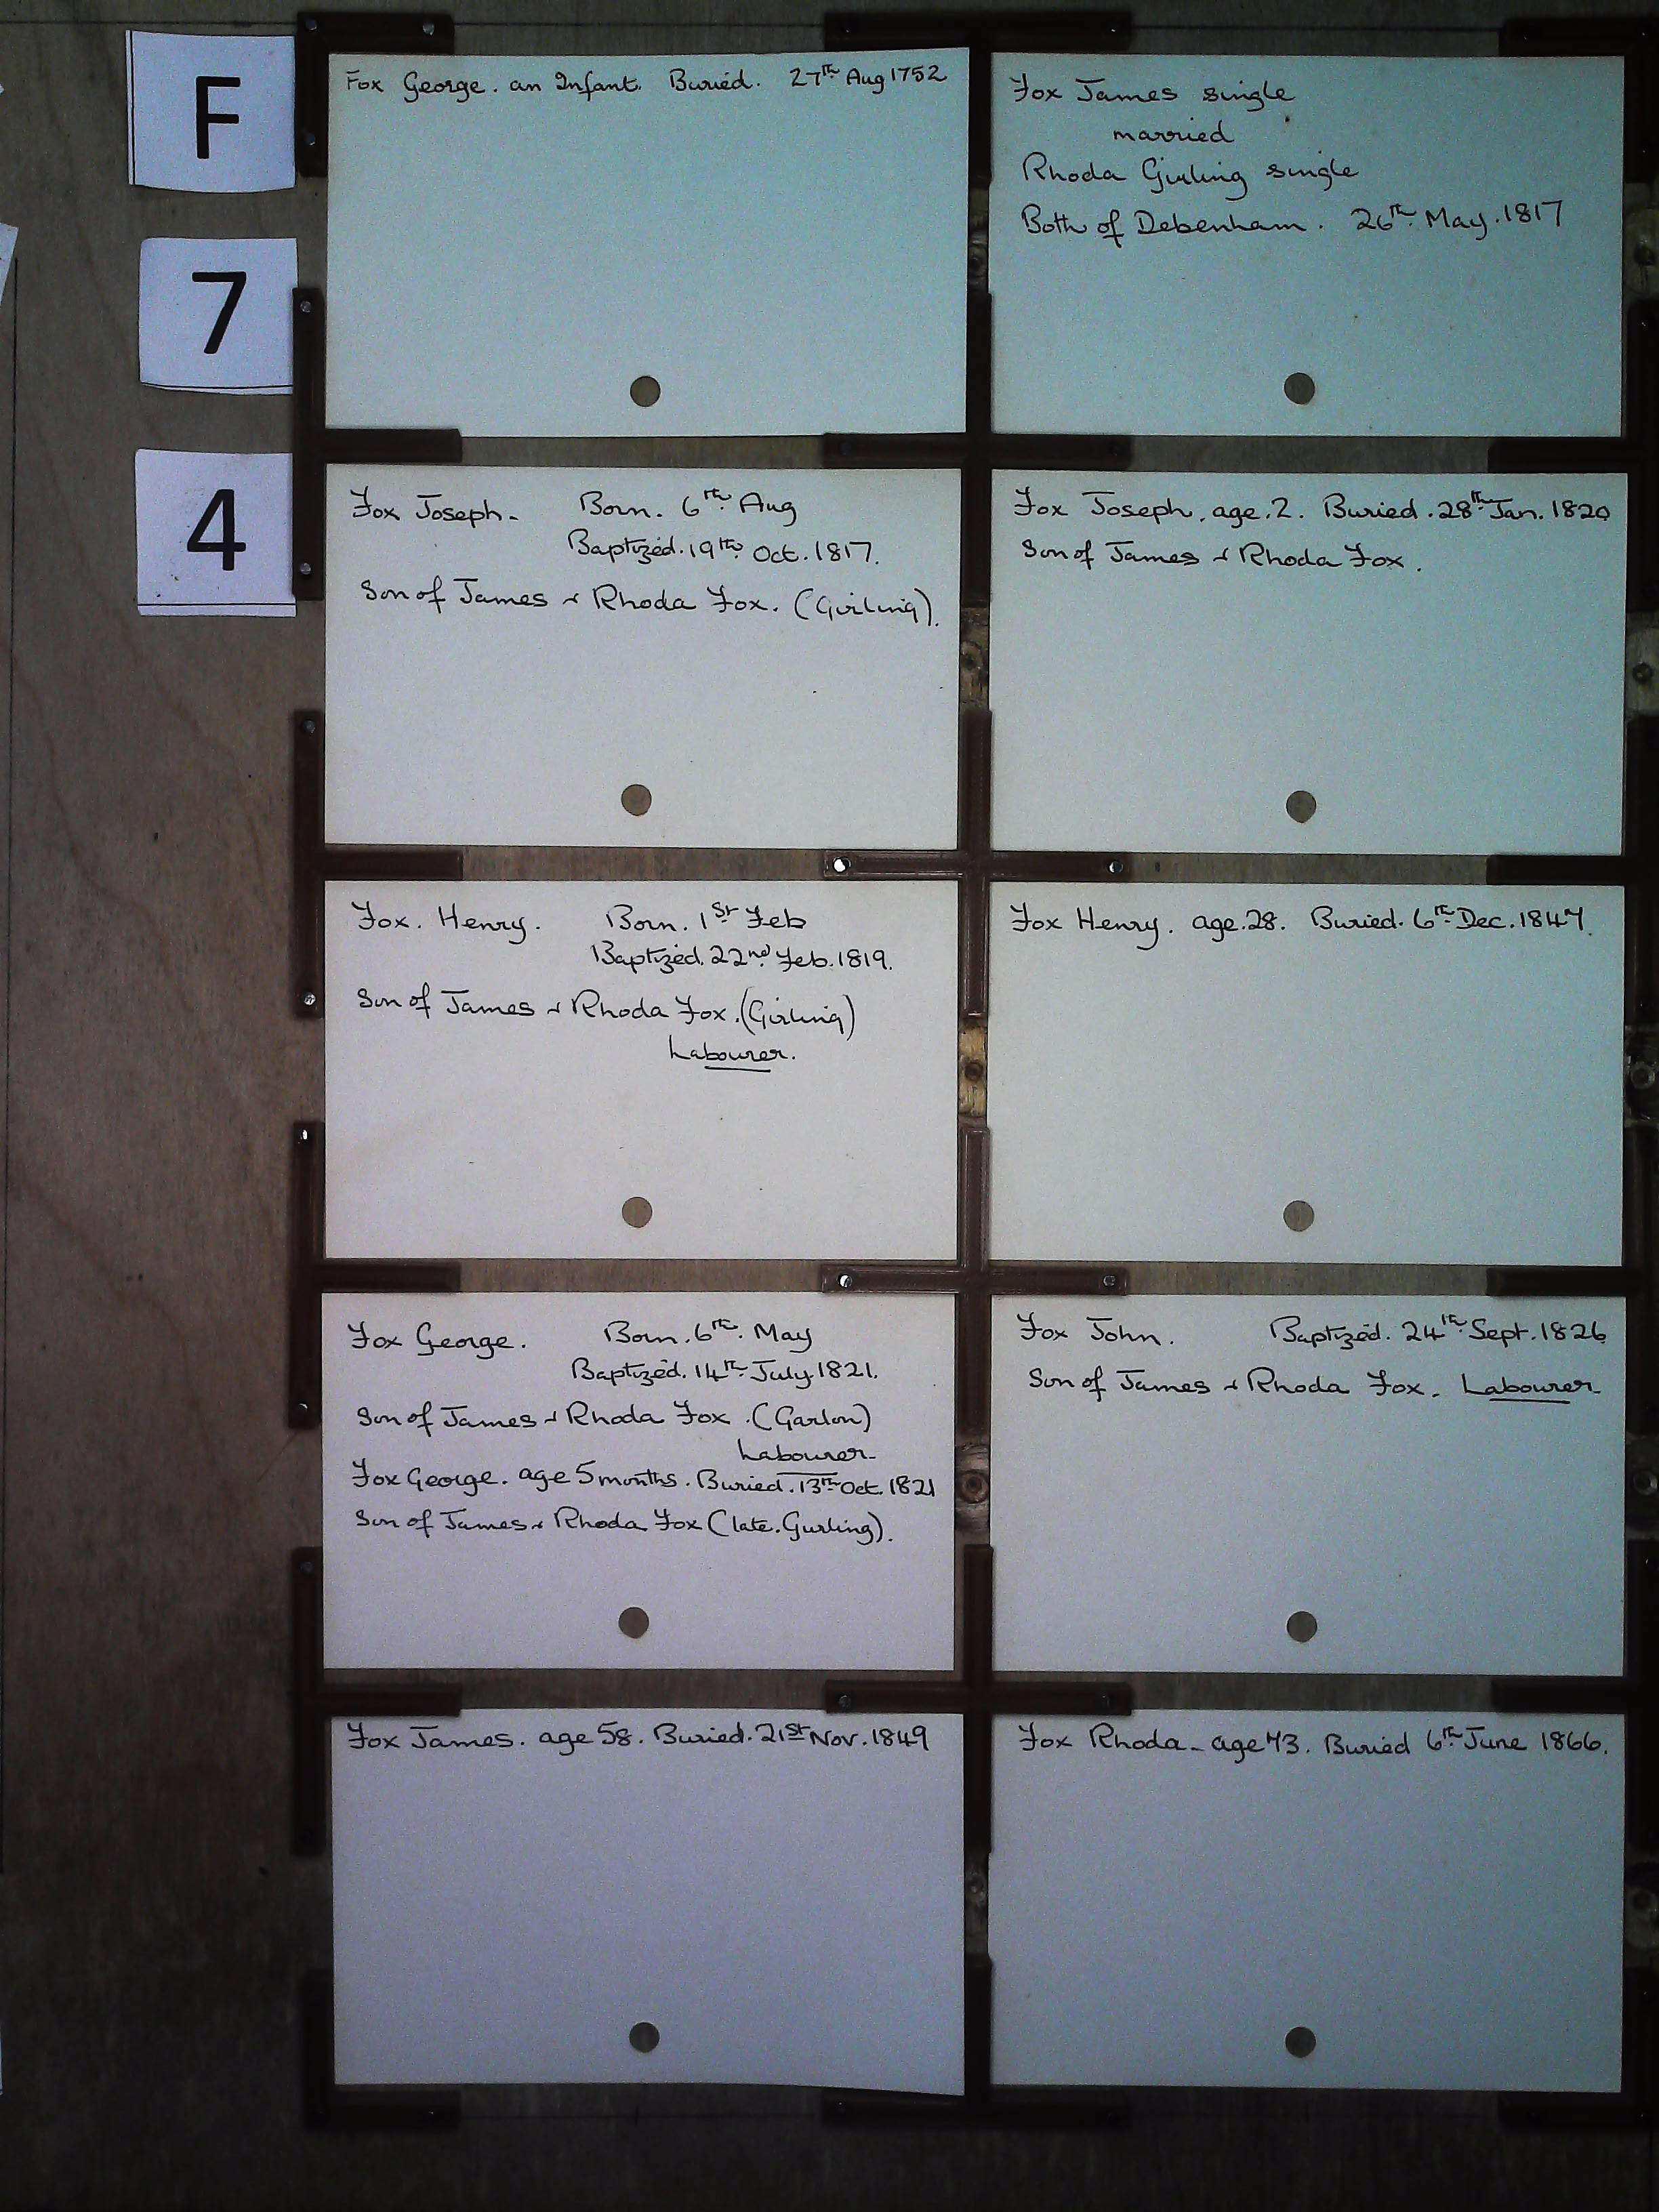 F
7
4
Fox George. an Infant. Buried. 27th Aug 1752
Fox James single
married
Rhoda Girling single
Both of Debenham. 26th May. 1817
Fox Joseph. Born. 6th Aug
Baptized. 19th Oct. 1817.
Son of James & Rhoda Fox. (Girling).
Fox Joseph. age. 2. Buried. 28th Jan. 1820
Son of James & Rhoda Fox.
Fox. Henry. Born. 1st Feb
Baptized. 22nd Feb. 1819.
Son of James & Rhoda Fox. (Girling)
Labourer.
Fox Henry. age. 28. Buried. 6th Dec. 1847.
Fox George. Born. 6th May
Baptized. 14th July. 1821.
Son of James & Rhoda Fox. (Garlon)
Labourer.
Fox George. age 5 months. Buried. 13th Oct. 1821
Son of James & Rhoda Fox (late. Gurling).
Fox John. Baptized. 24th Sept. 1826
Son of James & Rhoda Fox. Labourer.
Fox James. age 58. Buried. 21st Nov. 1849
Fox Rhoda. age 73. Buried 6th June 1866.